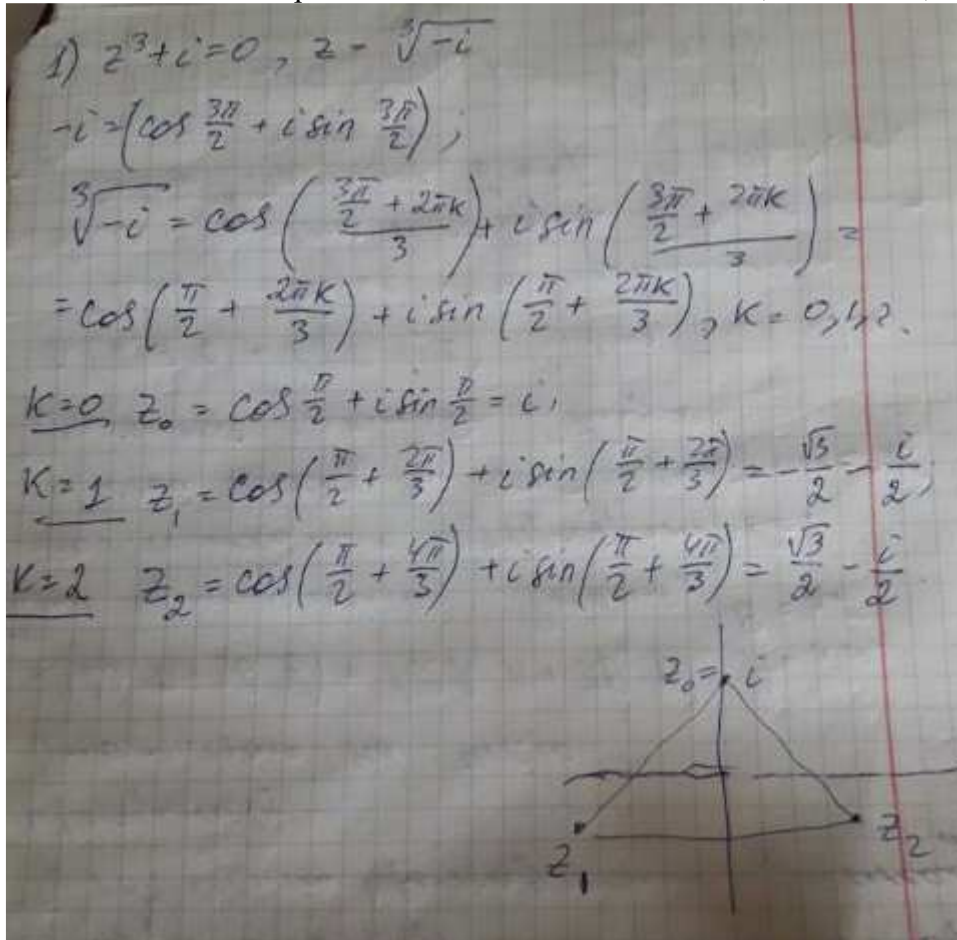 1) z³+i=0, z - ∛(-i)
-i=(cos 3π/2 + i sin 3π/2);
∛(-i) = cos((3π/2 + 2πк)/3) + i sin((3π/2 + 2πк)/3) =
=cos(π/2 + 2πк/3) + i sin(π/2 + 2πк/3), к = 0,1,2.
к=0 z₀ = cos π/2 + i sin π/2 = i,
к=1 z₁ = cos(π/2 + 2π/3) + i sin(π/2 + 2π/3) = -√3/2 - i/2;
к=2 z₂ = cos(π/2 + 4π/3) + i sin(π/2 + 4π/3) = √3/2 - i/2
z₀= i
z₁ z₂